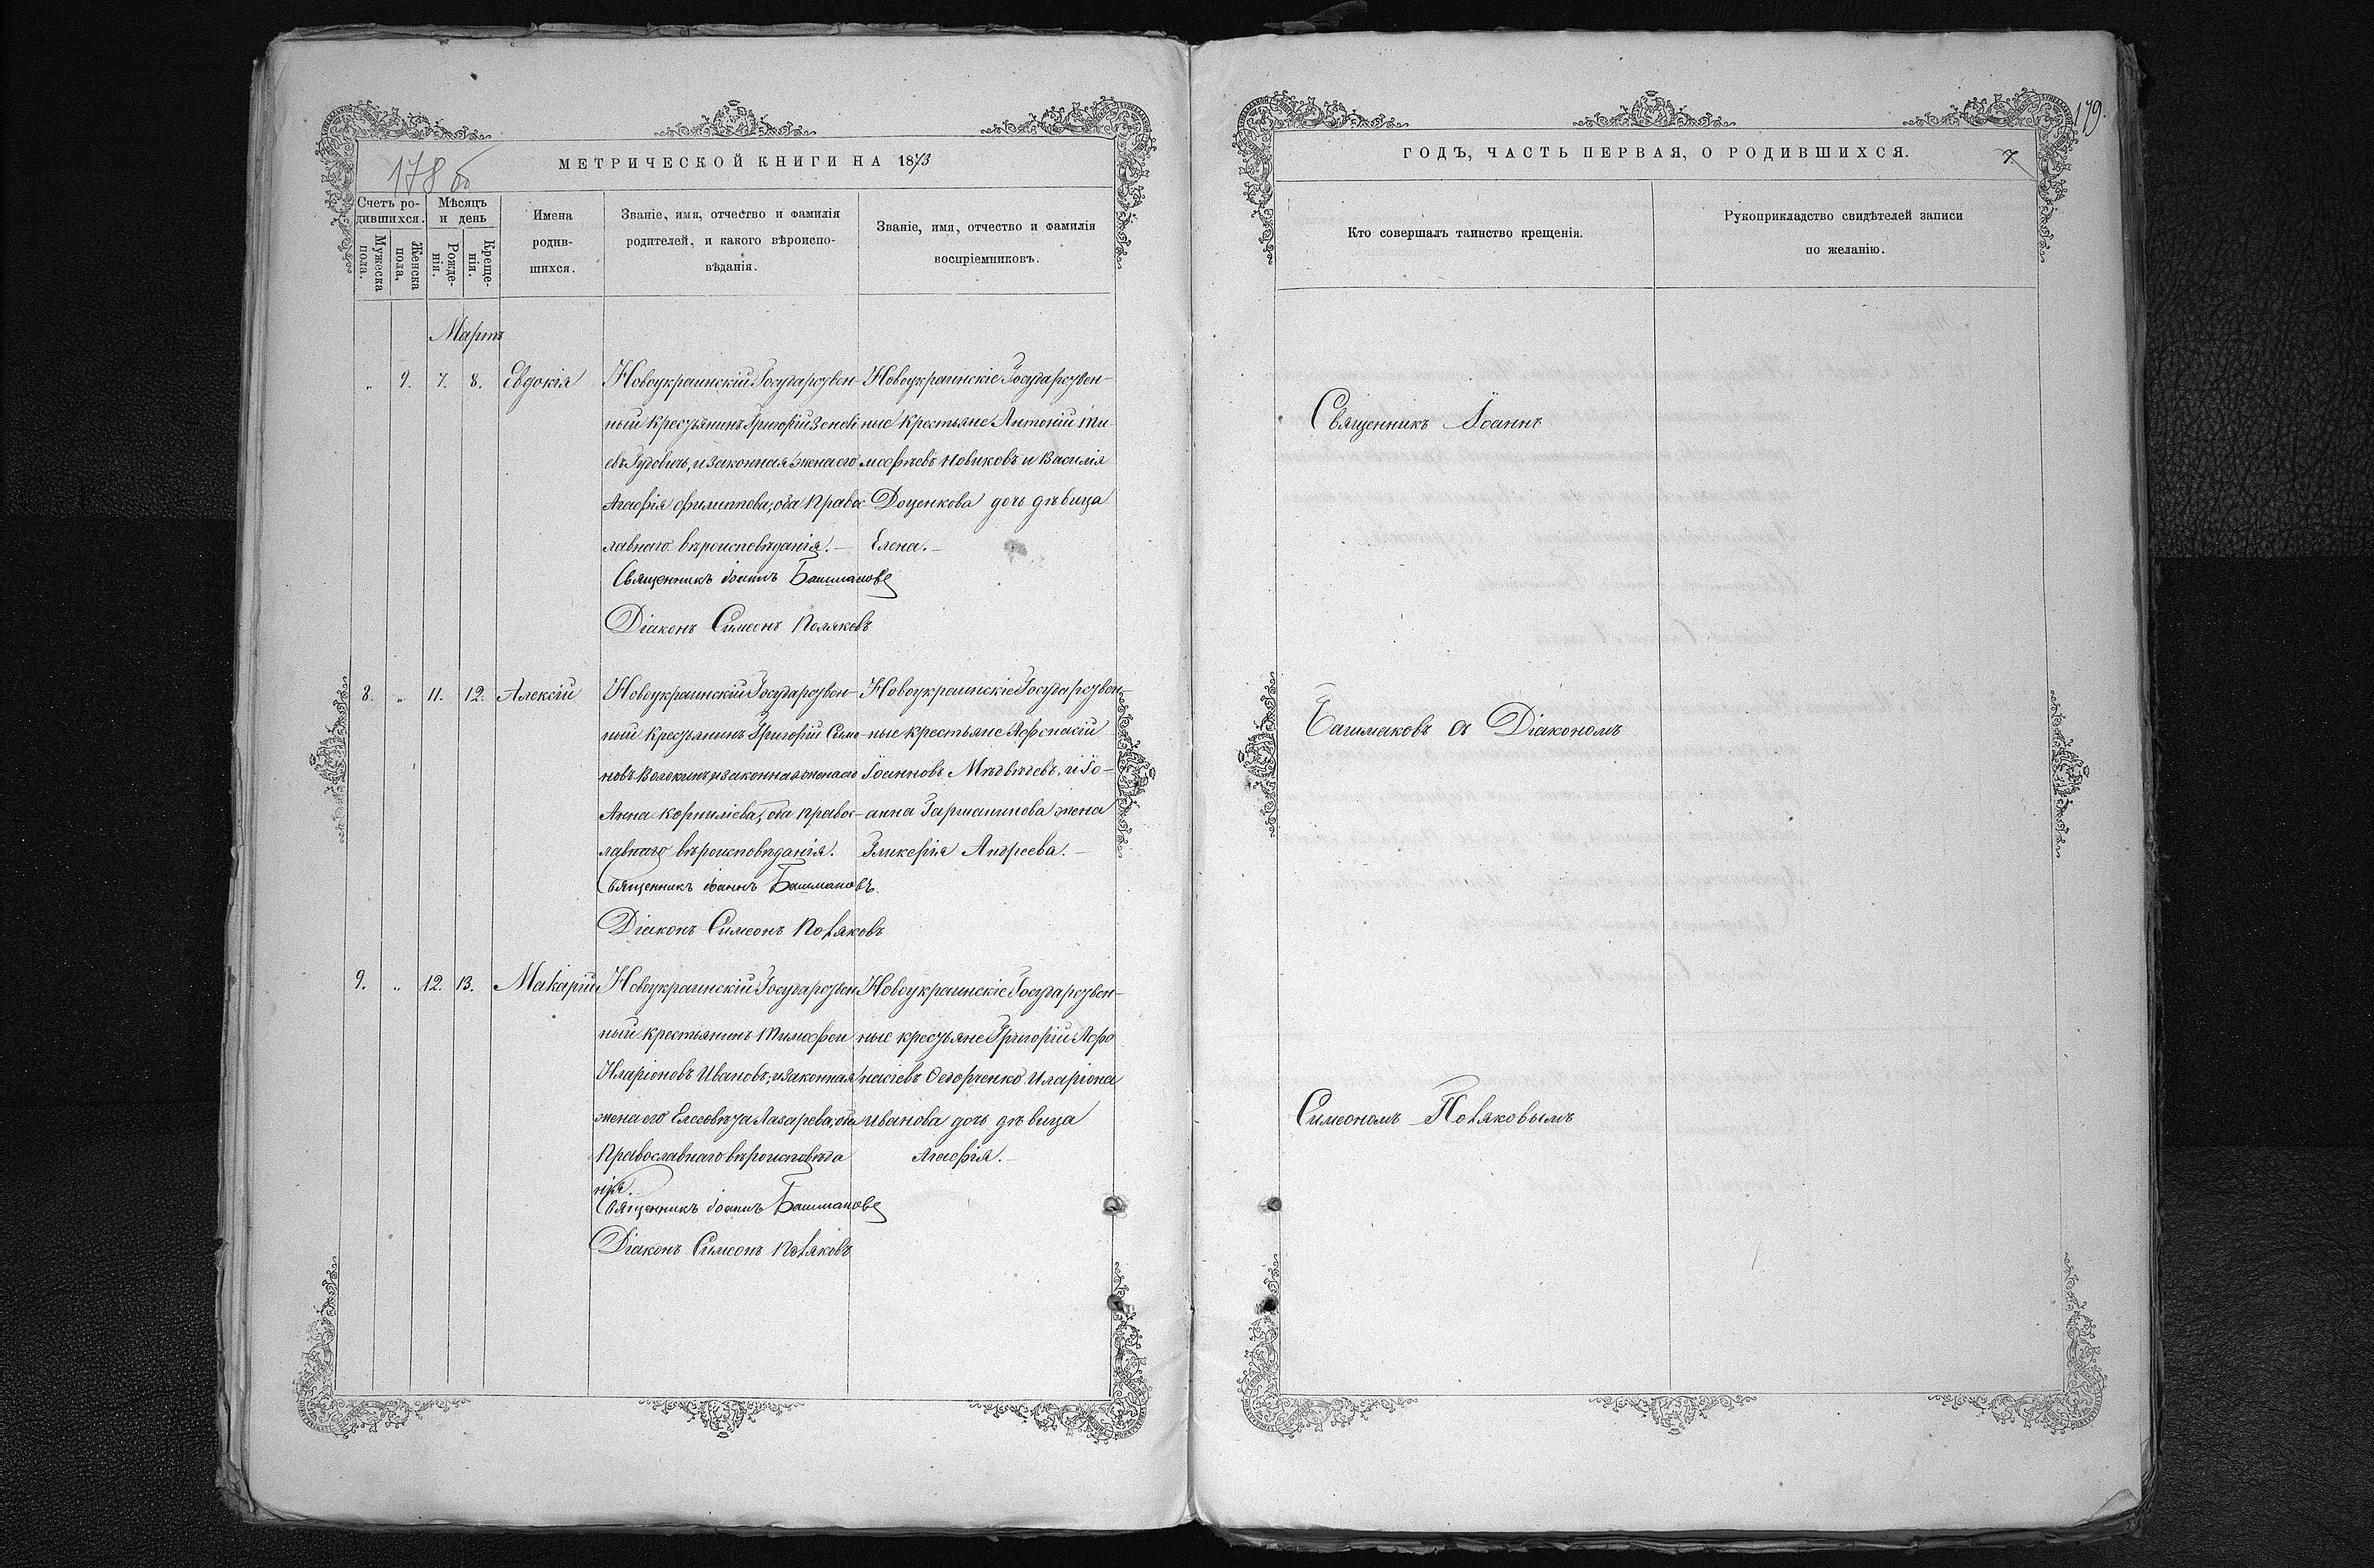 178 об
МЕТРИЧЕСКОЙ КНИГИ НА 1873
Счетъ ро-
дившихся.
Мужеска
пола.
Женска
пола.
Мѣсяцъ
и день
Рожде-
нія.
Креще-
нія.
Имена
родив-
шихся.
Званіе, имя, отчество и фамилія
родителей, и какого вѣроиспо-
вѣданія.
Званіе, имя, отчество и фамилія
воспріемниковъ.
Мартъ
„ 9. 7. 8. Евдокія
Новоукраинскій Государствен-
ный крестьянинъ Григорій
евъ и законная жена его
Агафія Филиппова, оба правос
лавнаго вѣроисповѣданія. —
Священникъ Іоаннъ Башмаковъ
Діаконъ Симеонъ Поляковъ
Новоукраинскіе Государствен-
ные крестьяне Антоній Ти
мофѣевъ Новиковъ и Василія
Доценкова дочь дѣвица
Елена. —
8. „ 11. 12. Алексій
Новоукраинскій Государствен-
ный крестьянинъ Григорій Симо
новъ Волокинъ, и законная жена его
Анна Корниліева, оба правос-
лавнаго вѣроисповѣданія.
Священникъ Іоаннъ Башмаковъ.
Діаконъ Симеонъ Поляковъ
Новоукраинскіе Государствен-
ные крестьяне Афонасій
Іоанновъ Медвѣдевъ, и Іо-
анна Гаршанинова жена
Гликерія Андреева. —
9. „ 12. 13. Макарій
Новоукраинскій Государствен
ный крестьянинъ Тимофей
Иларіоновъ Ивановъ, и законная
жена его Елесовѣта Лазарева, оба
Православнаго вѣроисповѣда
нія.
Священникъ Іоаннъ Башмаковъ
Діаконъ Симеонъ Поляковъ
Новоукраинскіе Государствен-
ные крестьяне Григорій Афо
насіевъ Федорченко Иларіона
Иванова дочь дѣвица
Агафія. —
179.
ГОДЪ, ЧАСТЬ ПЕРВАЯ, О РОДИВШИХСЯ.
7.
Кто совершалъ таинство крещенія.
Рукоприкладство свидѣтелей записи
по желанію.
Священникъ Іоаннъ
Башмаковъ съ Діакономъ
Симеономъ Поляковымъ